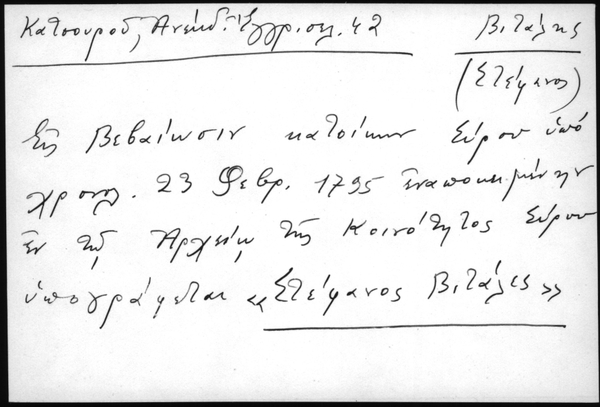 Κατσουροῦ, Ἀνέκδ. Ἔγγρ. σελ. 42
Βιτάλης
(Στέφανος)
Εἰς βεβαίωσιν κατοίκων Σύρου ὑπὸ
χρονολ. 23 Φεβρ. 1795 ἐναποκειμένην
ἐν τῷ Ἀρχείῳ τῆς Κοινότητος Σύρου
ὑπογράφεται «Στέφανος Βιτάλες»